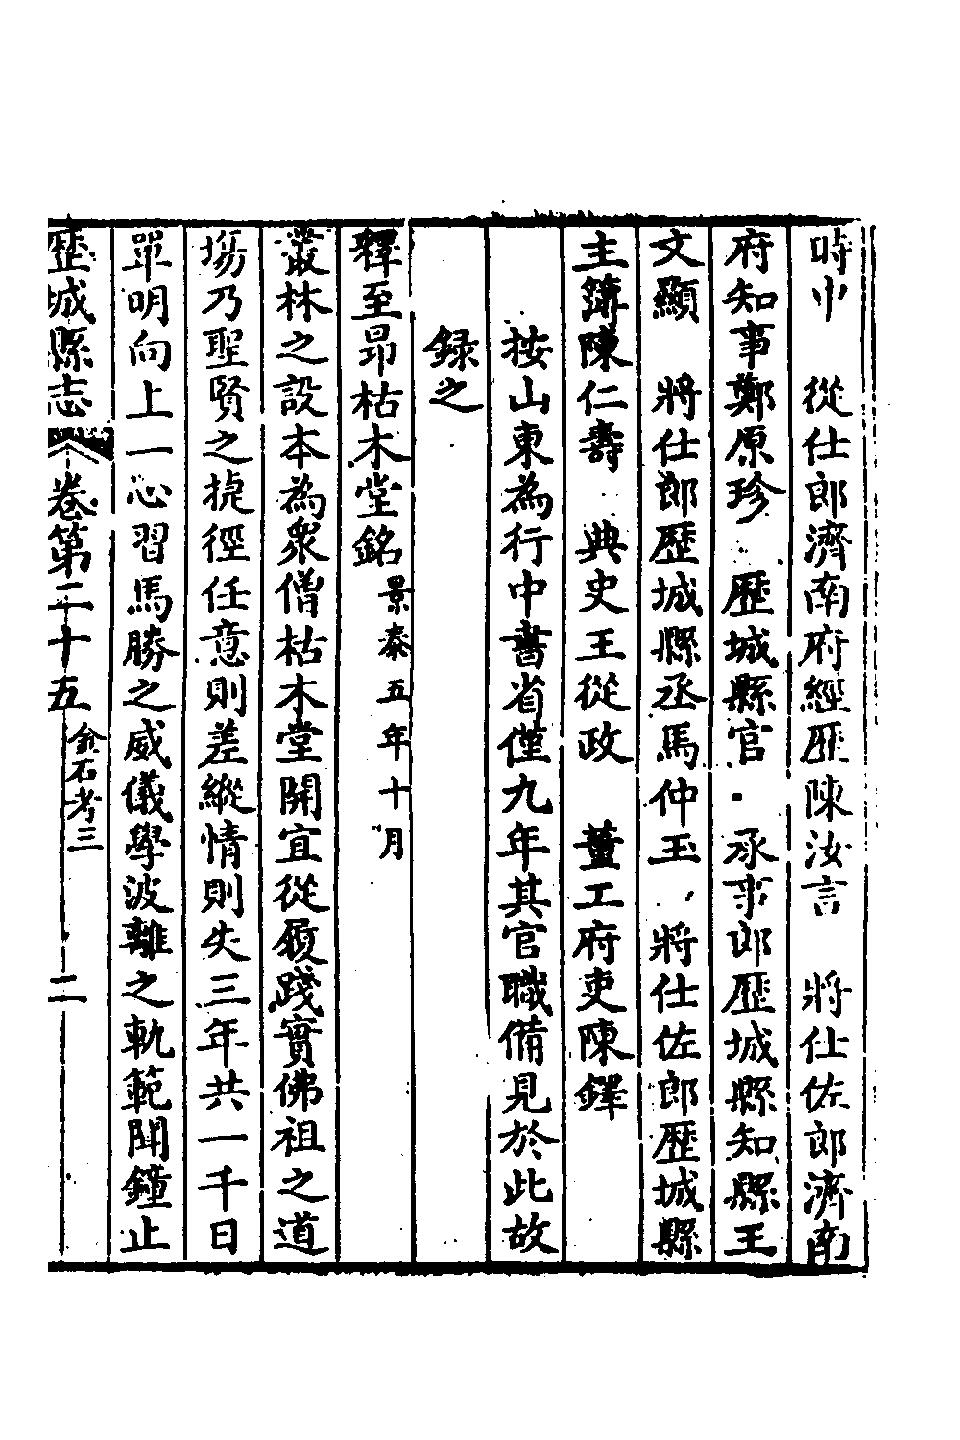 時中　從仕郎濟南府經歷陳汝言　將仕佐郎濟南
府知事鄭原珍　歷城縣官　承事郎歷城縣知縣王
文顯　將仕郎歷城縣丞馬仲玉　將仕佐郎歷城縣
主簿陳仁壽　典史王從政　董工府吏陳鐸
按山東為行中書省僅九年其官職備見於此故
録之
釋至昂枯木堂銘景泰五年十月
叢林之設本為衆僧枯木堂開宜從履踐實佛祖之道
塲乃聖賢之捷徑任意則差縱情則失三年共一千日
單明向上一心習馬勝之威儀學波離之軌範聞鐘止
歷城縣志　卷第二十五　金石考三　二